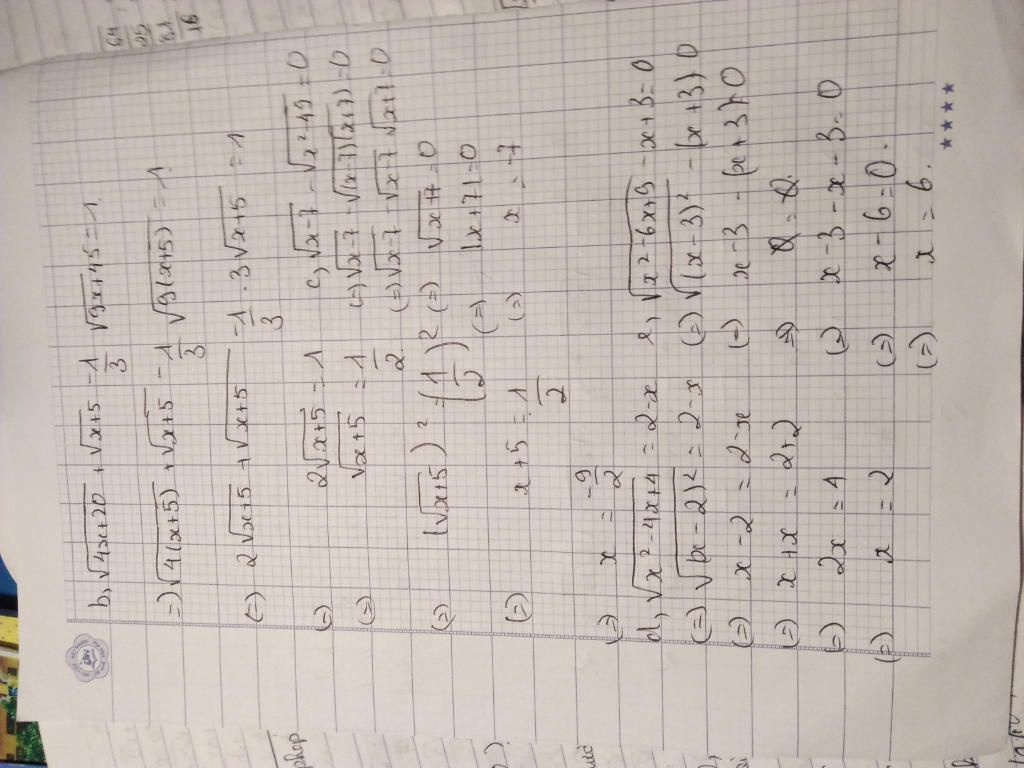 b, √4x+20 + √x+5 - 1/3 √9x+45 = 1.
=) √4(x+5) + √x+5 - 1/3 √9(x+5) = 1.
(=) 2√x+5 + √x+5 - 1/3 . 3√x+5 = 1
(=) 2√x+5 = 1
(=) √x+5 = 1/2
(=) (√x+5)² = (1/2)²
(=) x+5 = 1/2
(=) x = -9/2
c, √x-7 - √x²-49 = 0
(=) √x-7 - √(x-7)(x+7) = 0
(=) √x-7 - √x-7 . √x+7 = 0
(=) √x+7 = 0
(=) |x+7| = 0
(=) x = -7
d, √x²-4x+4 = 2-x
(=) √(x-2)² = 2-x
(=) x-2 = 2-x
(=) x+x = 2+2
(=) 2x = 4
(=) x = 2
e, √x²-6x+9 - x+3 = 0
(=) √(x-3)² - (x+3) 0
(=) x-3 - (x+3) 0
(=) x-3-x-3 = 0
(=) x-6 = 0.
(=) x = 6.
64
25